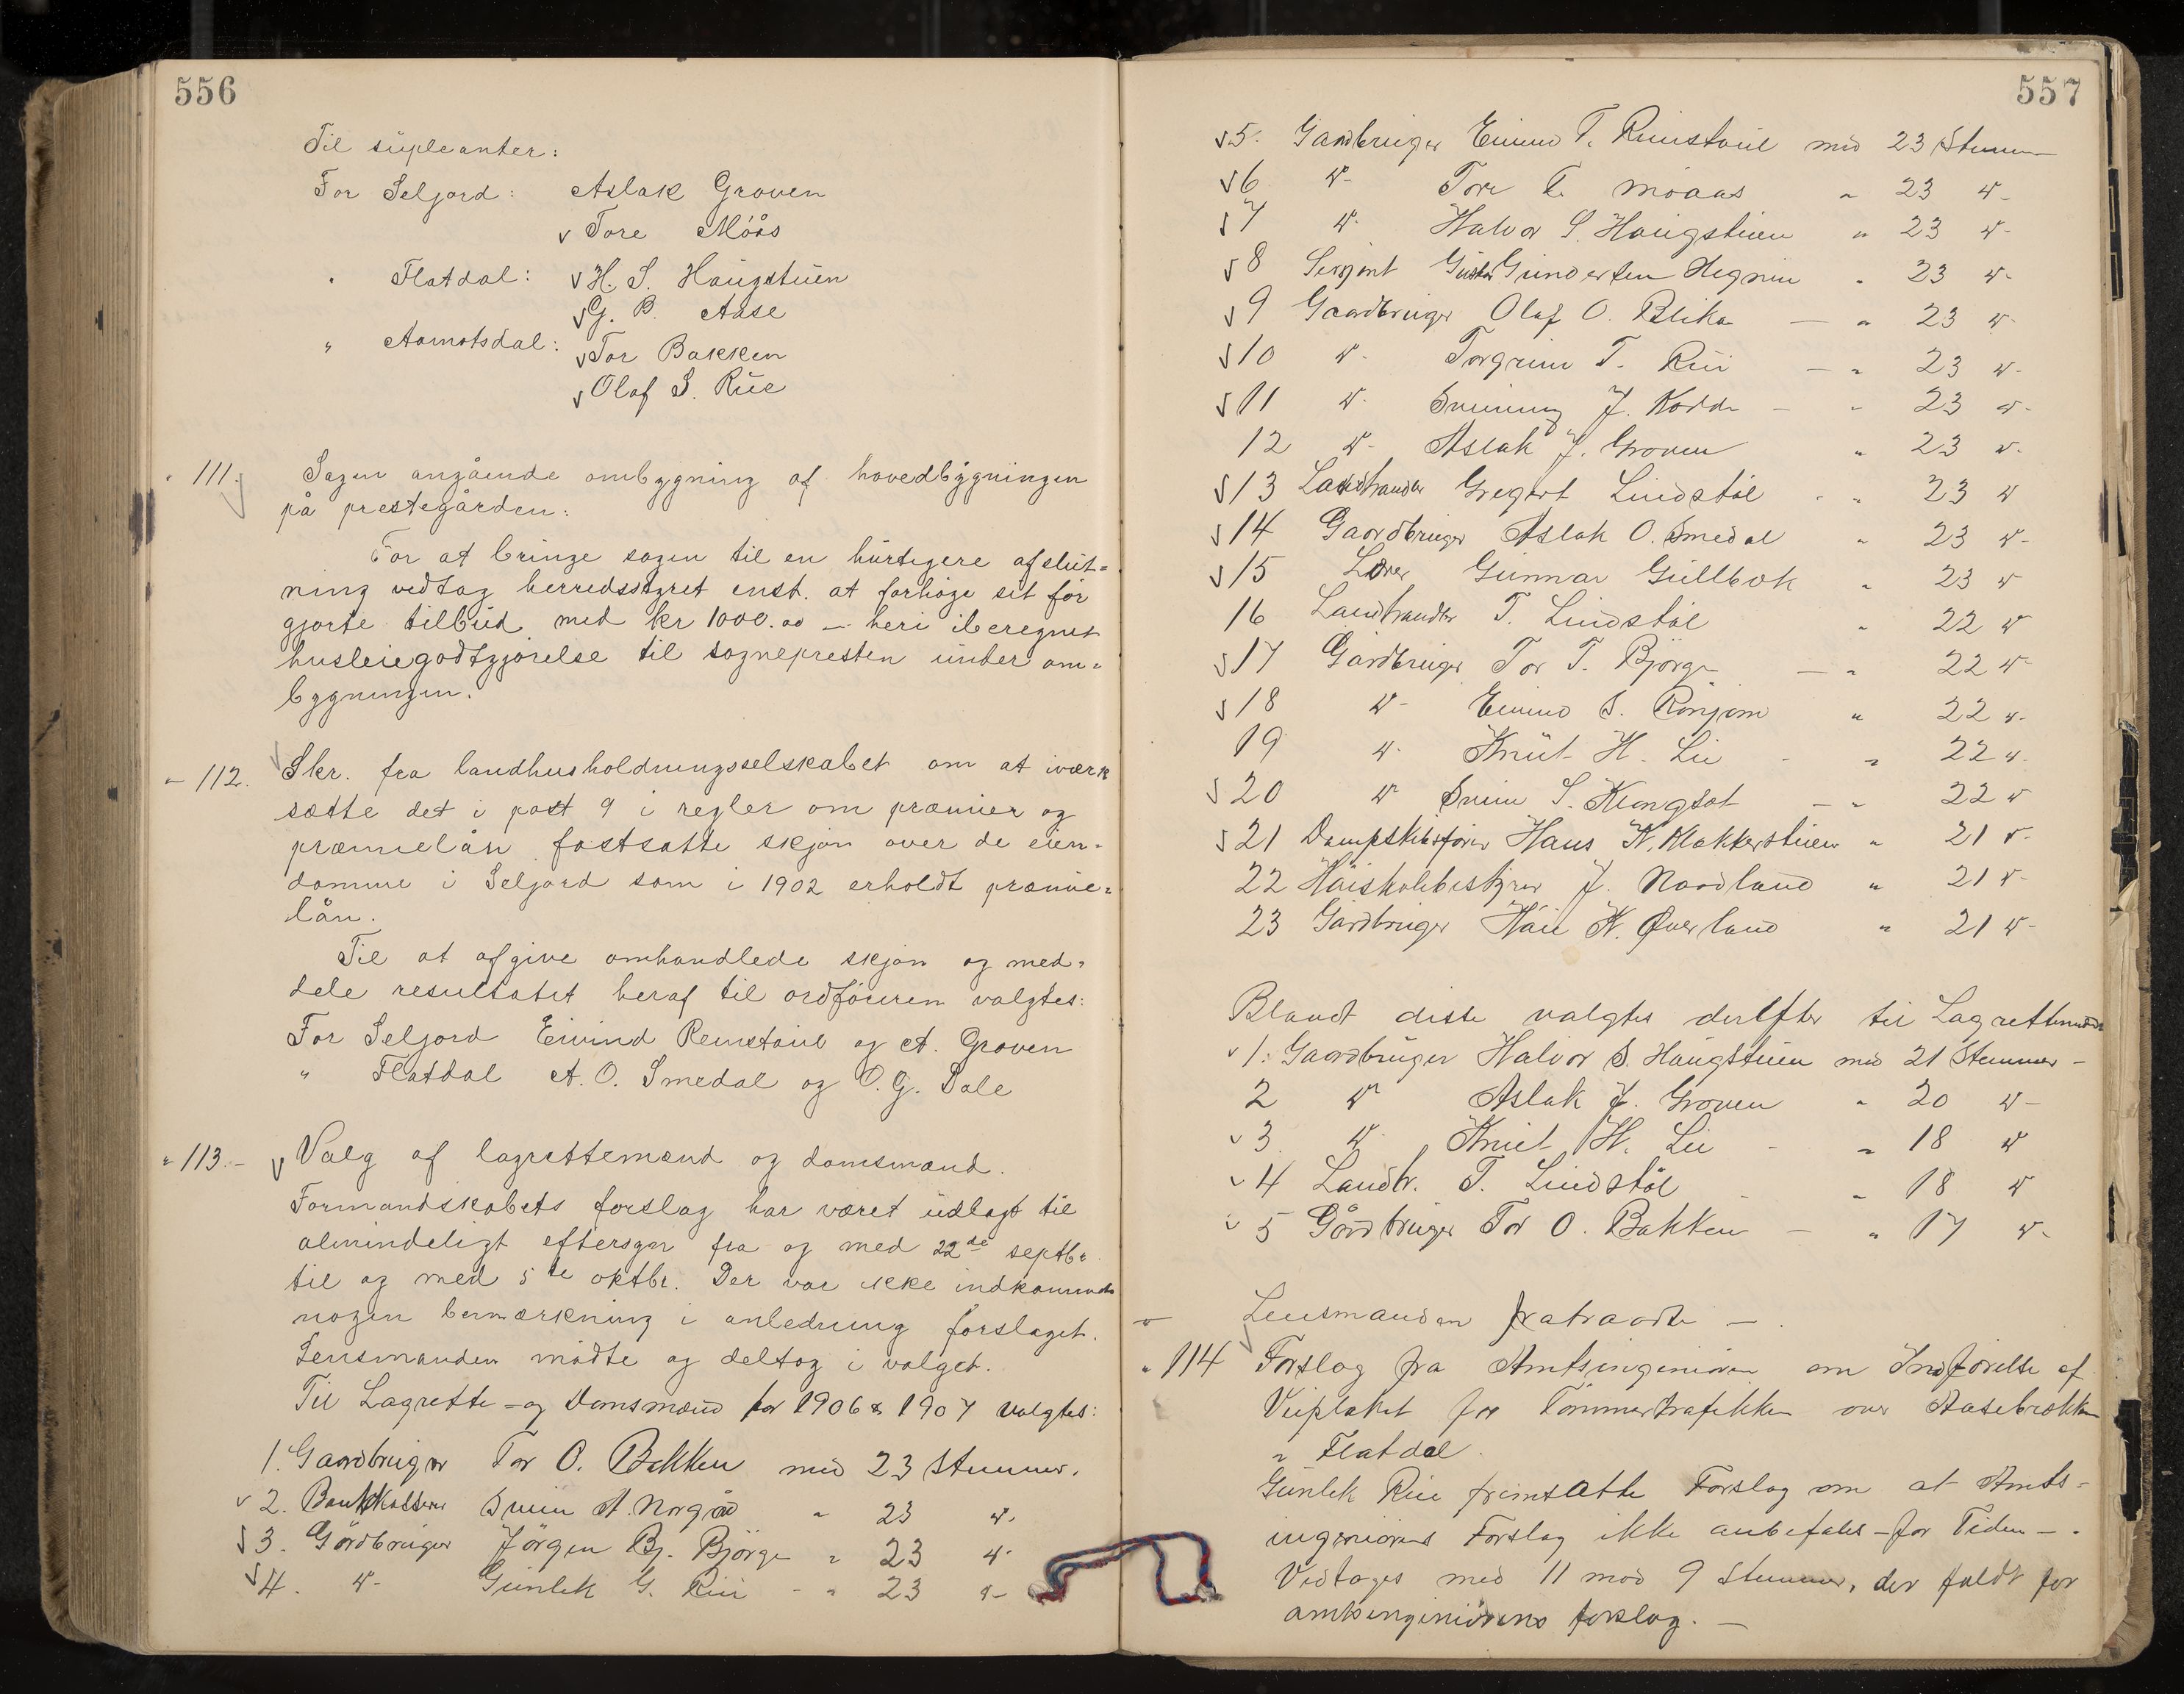 556
Til supleanter:
For Seljord: Aslak Groven
v Tore Móås
" Flatdal: v H. S. Haugstuen
v G. B. Aase
" Aamotsdal: v Tor Bakken
v Olaf S. Rue
" 111. Sagen angående ombygning af hovedbygningen
på prestegården:
For at bringe sagen til en hurtigere afslut=
ning vedtog herredsstyret enst. at forhøge sit før
gjorte tilbud med kr 1000.00 – heri iberegnet
husleiegodtgjørelse til sognepresten under om=
bygningen.
" 112. Skr. fra landhusholdningsselskabet om at iværk
sætte det i post 9 i regler om præmier og
præmielån fastsatte skjøn over de eien=
domme i Seljord som i 1902 erholdt præmie=
lån.
Til at afgive omhandlede skjøn og med=
dele resultatet heraf til ordføreren valgtes:
For Seljord Eivind Remstoul og A. Groven
" Flatdal A. O. Smedal og O. G. Dale
" 113. – v Valg af lagrettemænd og domsmænd.
Formandskabets forslag har været udlagt til
almindeligt eftersyn fra og med 22de septbr.
til og med 5te oktbr. Der var ikke indkommet
nogen bemærkning i anledning forslaget.
Lensmanden mødte og deltog i valget.
Til Lagrette – og Domsmænd for 1906 & 1907 valgtes:
1. Gaardbruger Tor O. Bakken med 23 Stemmer.
v 2. Bankkasserer Svein A. Norgård " 23 "
v 3. Gårdbruger Jörgen Bj. Björge " 23 "
v 4. " Gunlek G. Rui " 23 "
557
v 5. Gaardbruger Eivind T. Rimstoul med 23 Stemmer
v 6 " Tore T. Moaas " 23 "
v 7 " Halvor S. Haugstuen " 23 "
v 8 Serjant Gundersen Hegnin " 23 "
v 9 Gaardbruger Olaf O. Blika – " 23 "
v 10 " Torgrim T. Rui – " 23 "
v 11 " Svenning J. Kodde – " 23 "
12 " Aslak J. Groven " 23 "
v 13 Landhandler Gregert Lindstöl – " 23 "
v 14 Gaardbruger Aslak O. Smedal " 23 "
v 15 Lærer Gunnar Gullbæk " 23 "
16 Landhandler T. Lindstöl " 22 "
v 17 Gårdbruger Tor T. Björge – " 22 "
v 18 " Eivind S. Rönjom " 22 "
19 " Knut H. Lie – " 22 "
v 20 " Svein S. Klongsøt – " 22 "
v 21 Dampskibsfører Hans K. Klakkerstuen " 21 "
22 Høiskolebestyrer J. Nordland " 21 "
23 Gårdbruger H. Øverland " 21 "
Blandt disse valgtes derefter til Lagrettemænd
v 1. Gaardbruger Halvor S. Haugstuen med 21 Stemmer –
2 " Aslak J. Groven " 20 "
v 3 " Knut H. Lie – " 18 "
v 4 Landh. T. Lindstöl " 18 "
v 5 Gårdbruger Tor O. Bakken – " 17 "
Lensmanden fratraadte –
" 114 Forslag fra Amtsingeniøren om Indførelse af
Veiplaket for Tømmertrafikken over Aasebrækken
" Flatdal.
Gunlek Rui fremsatte Forslag om at Amts=
ingeniørens Forslag ikke anbefales – for Tiden –.
Vedtages med 11 mod 9 Stemmer, der faldt for
amtsingeniørens forslag. –